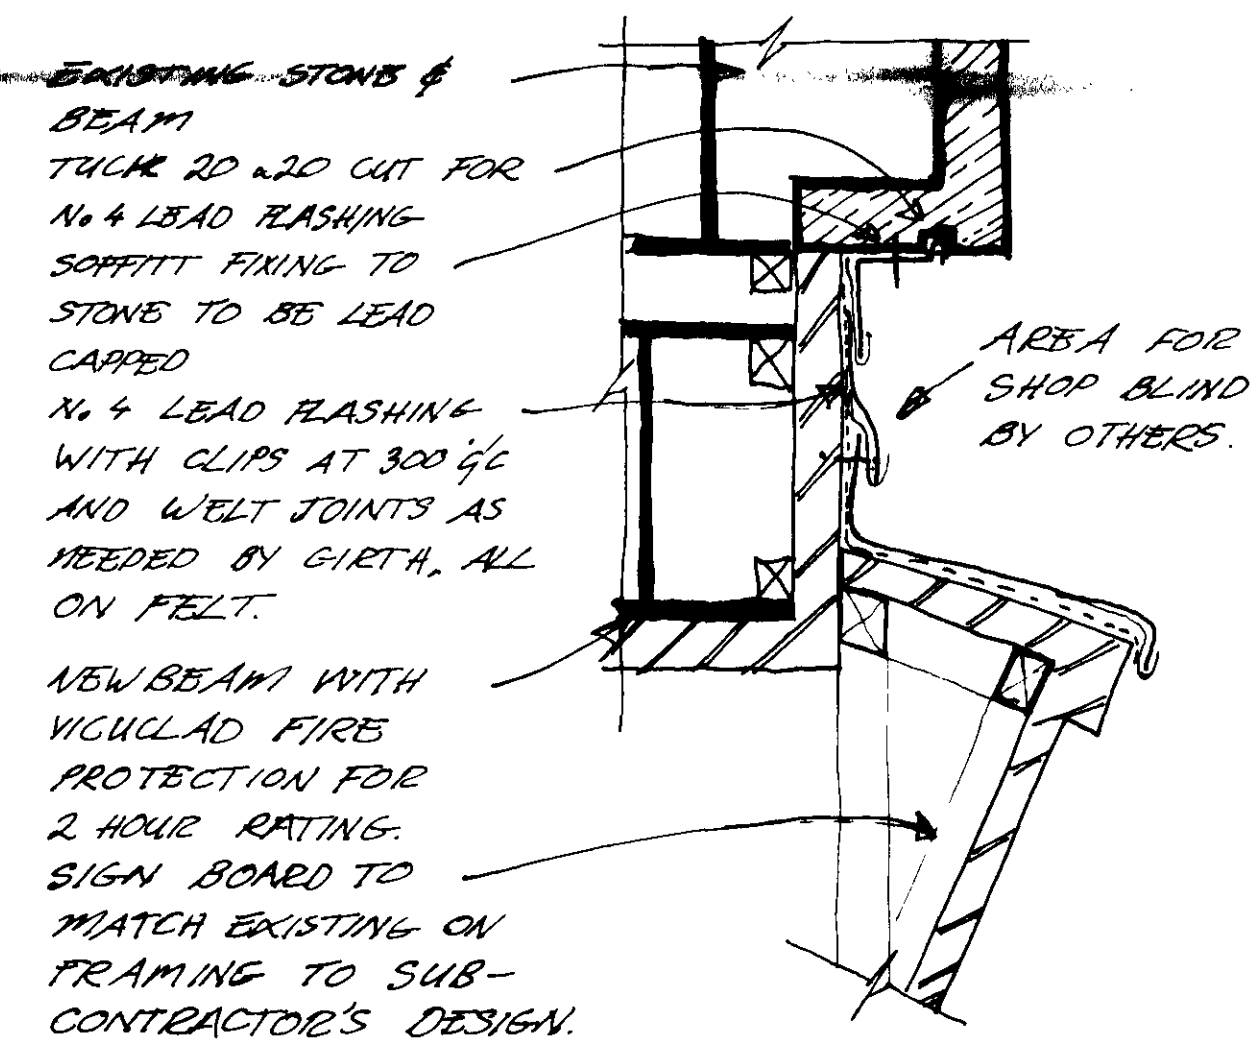 EXISTING STONE &
BEAM
TUCK 20 x 20 CUT FOR
No 4 LEAD FLASHING
SOFFITT FIXING TO
STONE TO BE LEAD
CAPPED
No 4 LEAD FLASHING
WITH CLIPS AT 300 c/c
AND WELT JOINTS AS
NEEDED BY GIRTH, ALL
ON FELT.
NEW BEAM WITH
VICUCLAD FIRE
PROTECTION FOR
2 HOUR RATING.
SIGN BOARD TO
MATCH EXISTING ON
FRAMING TO SUB-
CONTRACTOR'S DESIGN.
AREA FOR
SHOP BLIND
BY OTHERS.